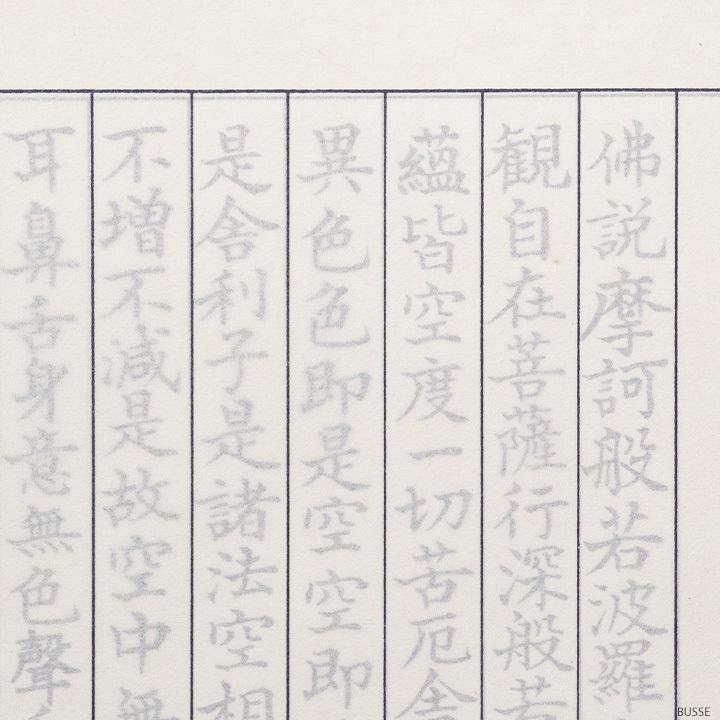 佛説摩訶般若波羅
観自在菩薩行深般若
蘊皆空度一切苦厄舎
異色色即是空空即
是舎利子是諸法空相
不増不減是故空中無
耳鼻舌身意無色聲
BUSSE